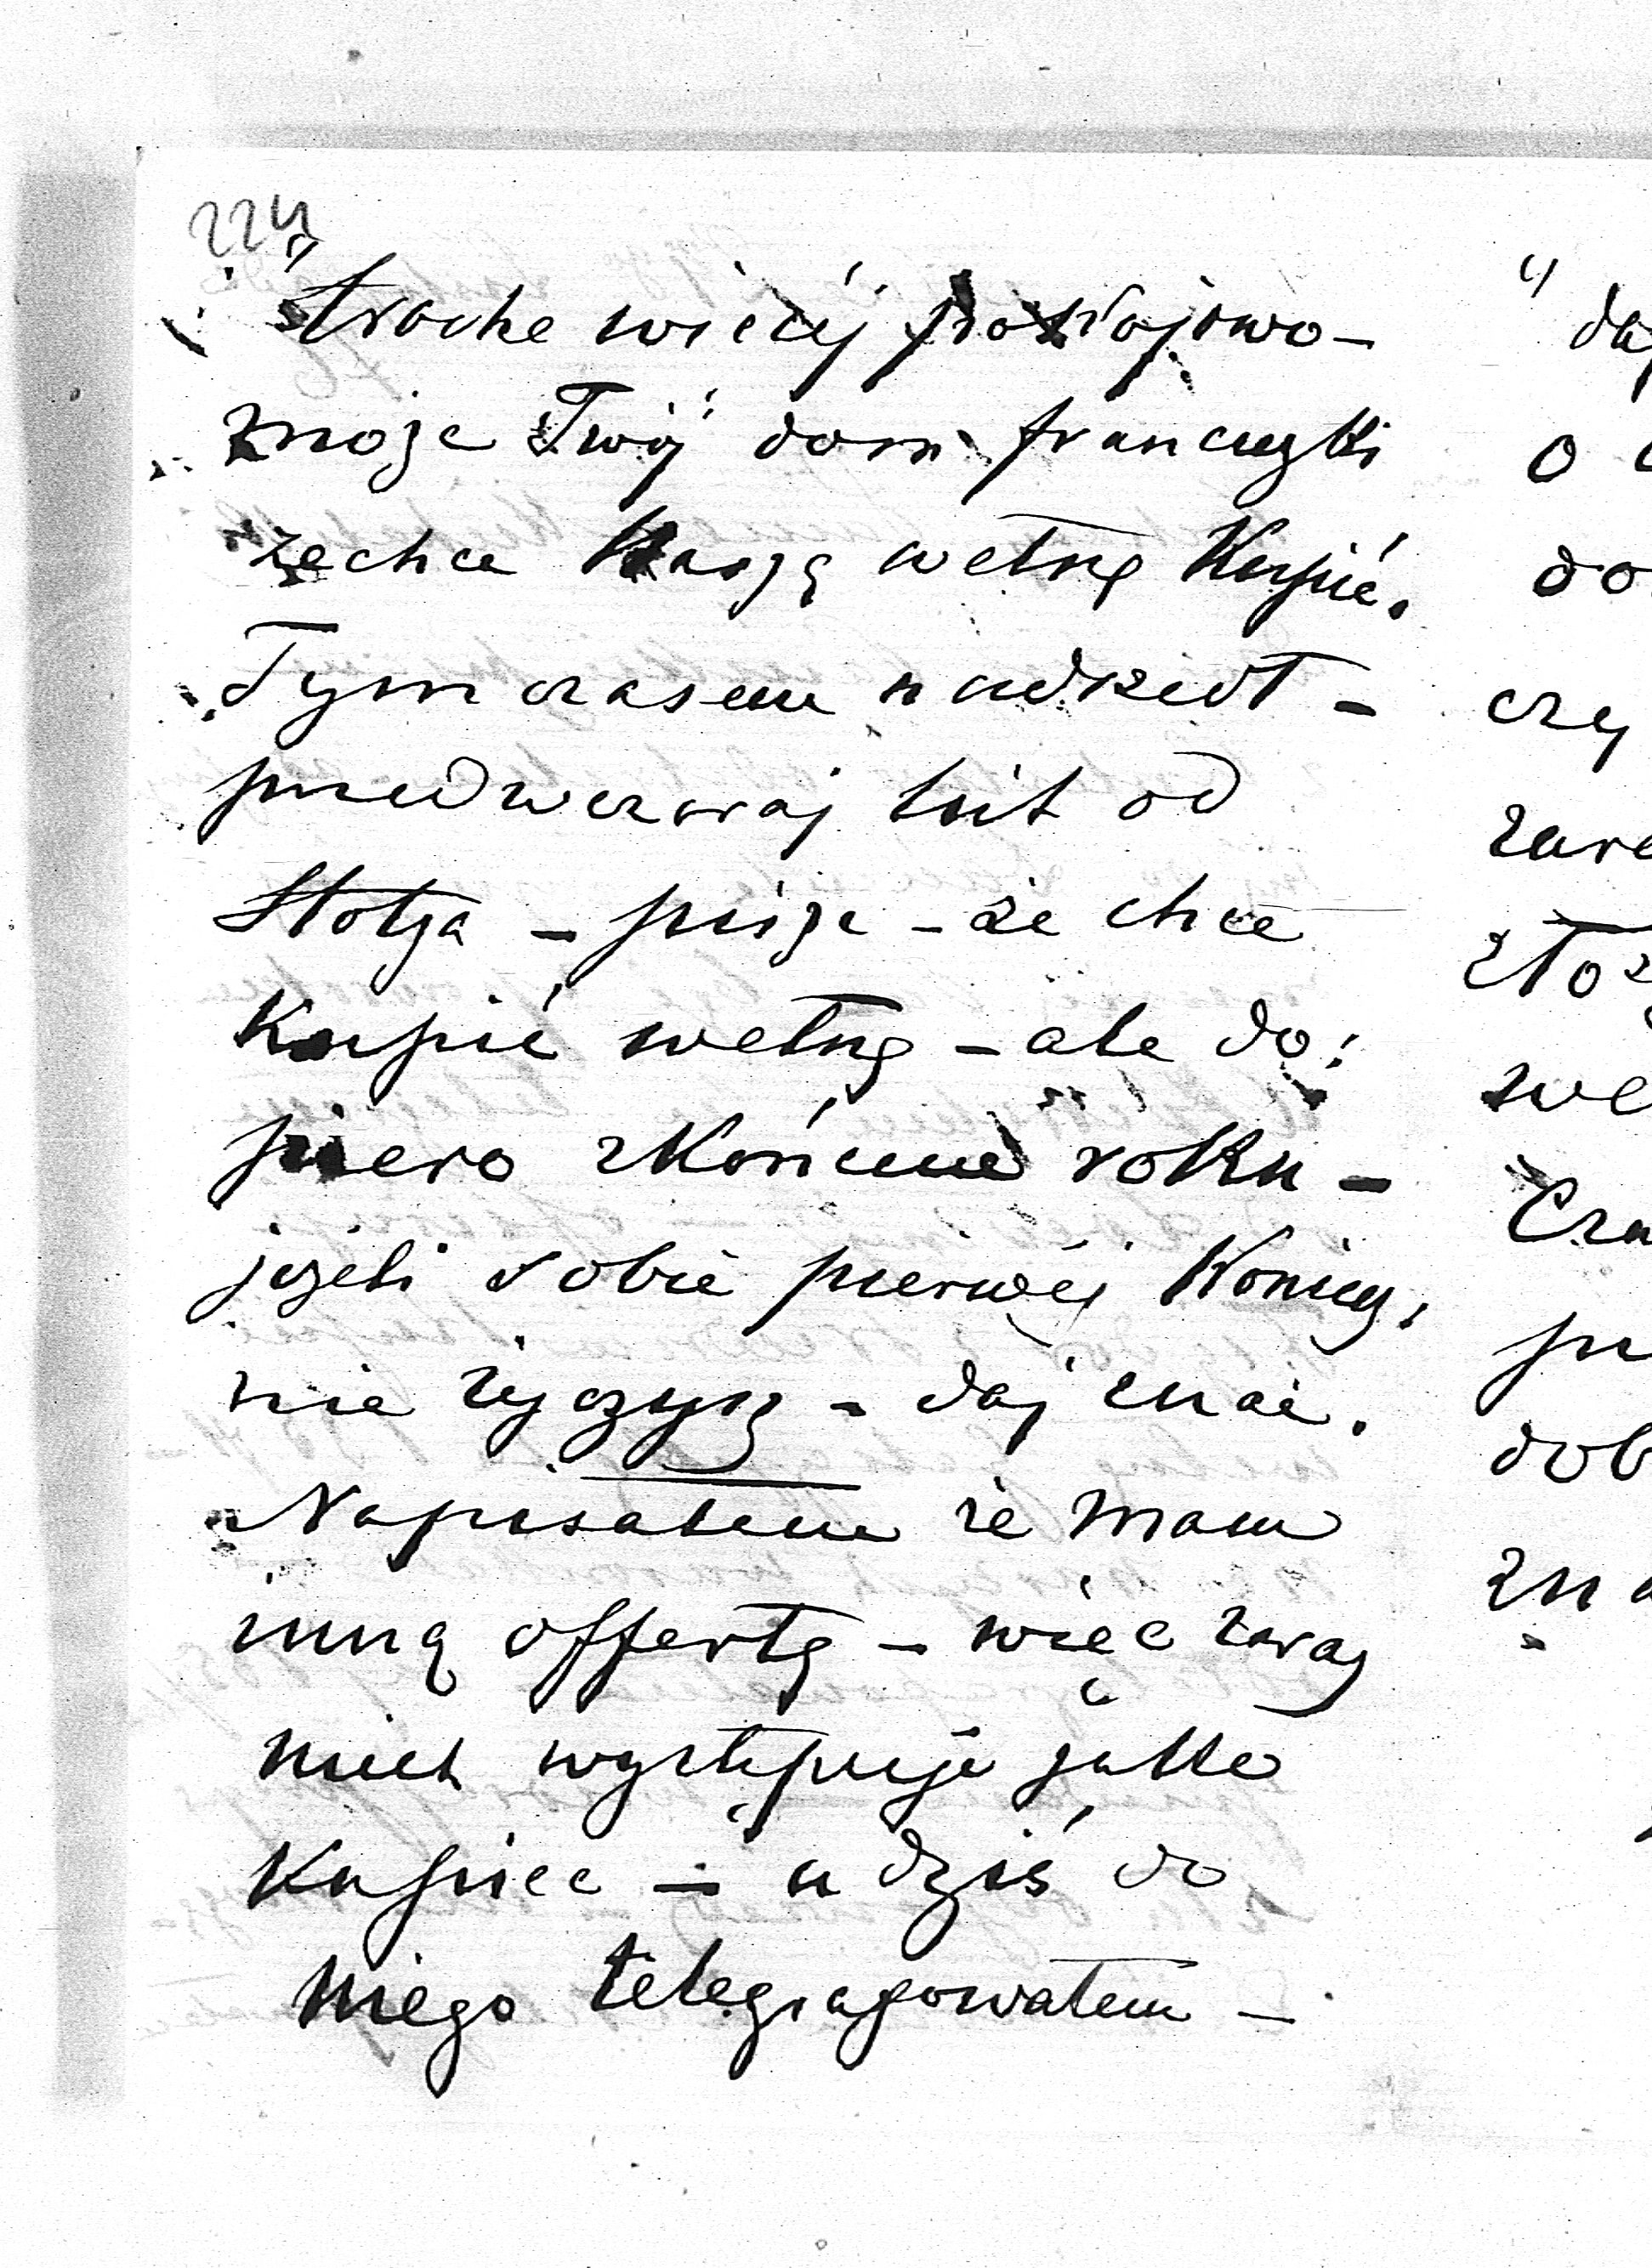 224
"trochę więcéj pokojowo –
może Twój dom francuzki
zechce Naszą wełnę Kupić.
Tymczasem nadszedł –
przedwczoraj list od
Stolza – pisze – że chce
Kupić wełnę – ale do:
piero zkońcem roku –
jeżeli sobie pierwéj Koniecz:
nie życzysz – daj znać.
Napisałem że mam
inną offertę – więc zaraz
niech występuje jako
Kupiec – a dziś do
niego telegrafowałem –
"
o
do
czy
we
dob